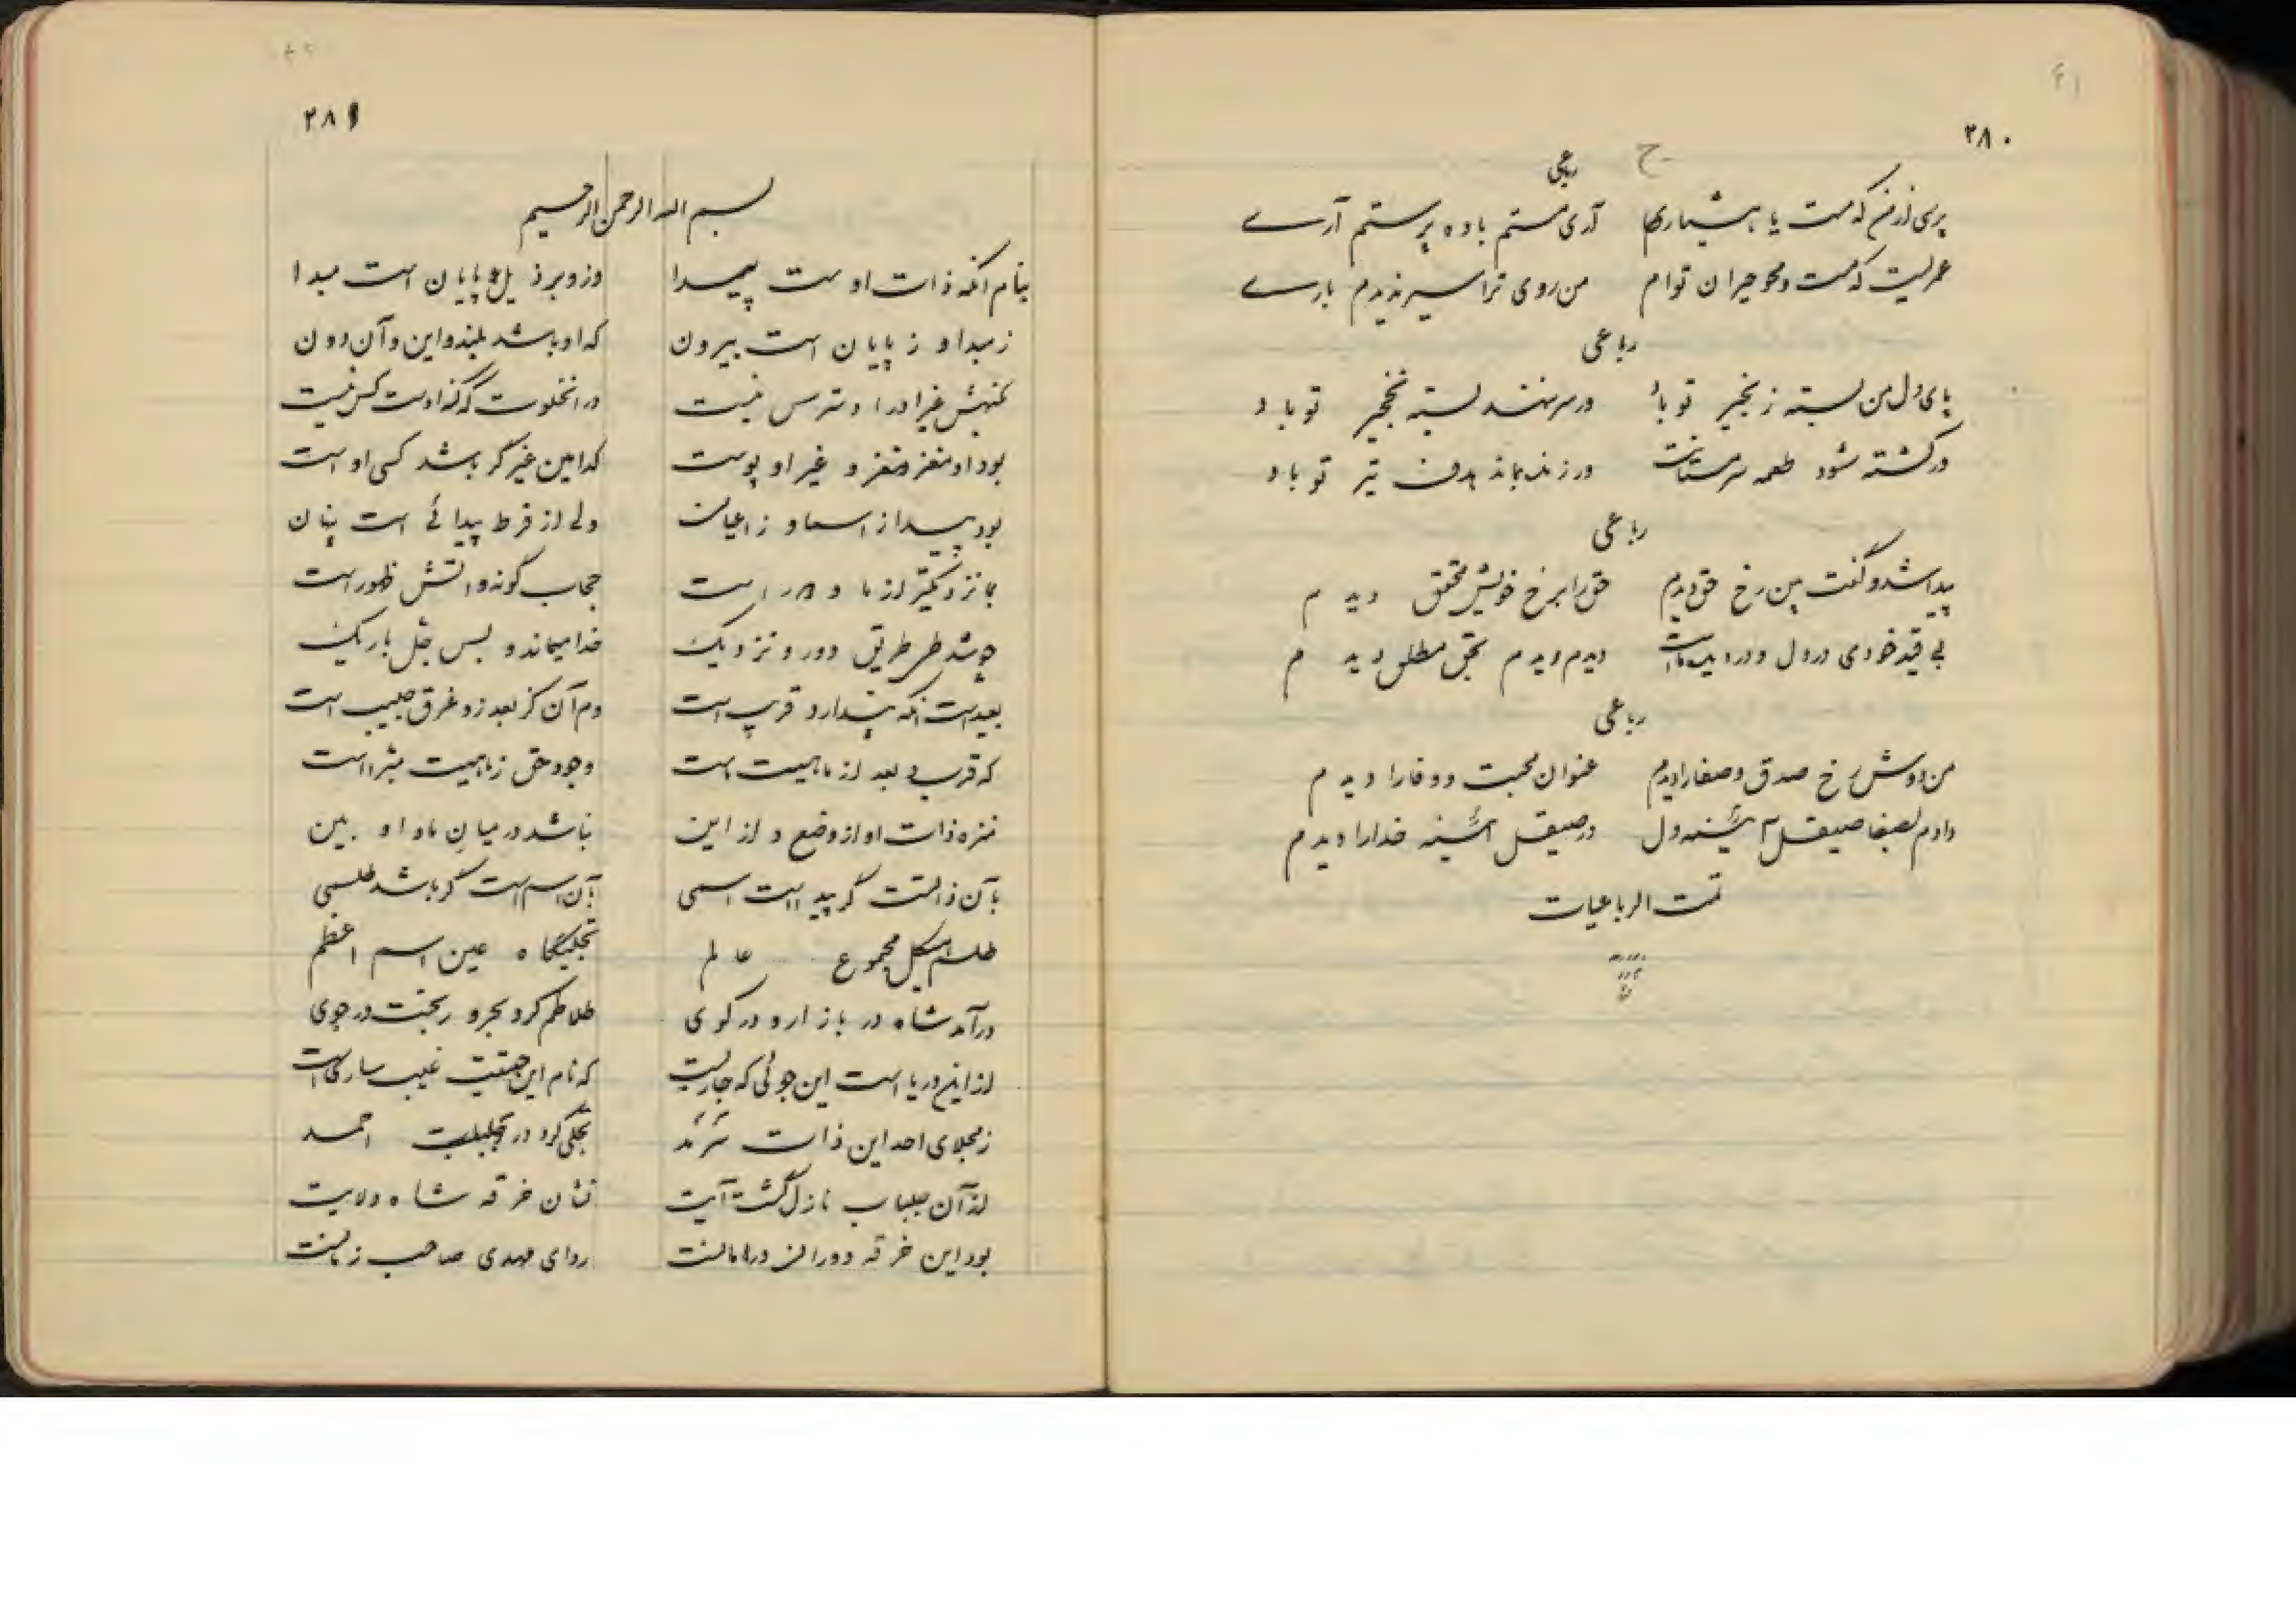 ۲۸۰
رباعی
پرسی از من که مست یا هشیاری آری مستم باده پرستم آرے
عمریست که مست و محو حیران توام من روی ترا سیر ندیدم بارے
رباعی
پای دل من بسته زنجیر تو باد ور سر نهند بسته نخجیر تو باد
ور کشته شود طعمه سرمستانت ور زنده بماند هدف تیر تو باد
رباعی
پیدا شد و گفت بین رخ حق دیدم حق را برخ خویش محقق دیدم
بی قید خودی در دل و در دیده دیدم دیدم بحق مطلق دیدم
رباعی
من دوش رخ صدق و صفا را دیدم عنوان محبت و وفا را دیدم
دادم بصفا صیقل آئینه دل در صیقل آئینه خدا را دیدم
تمت الرباعیات
۲۸۱
بسم الله الرحمن الرحیم
بنام آنکه ذات اوست پیدا وزو بر ذیل پایان است مبدا
ز مبدا و ز پایان است بیرون که او باشد بلند و این و آن دون
کنهش غیر او را دسترس نیست در آنخلوت که کنه اوست کس نیست
بود او مغز مغز و غیر او پوست کدامین غیر گر باشد کسی اوست
بود پیدا ز اسما و ز اعیان ولی از فرط پیدائی است پنهان
بما نزدیکتر از ما و دور است حجاب گونه و اتش ظهور است
چو شد طی طریق دور و نزدیک خدا میماند و بس جل باریک
بعید است آنکه پندارد قریب است دم آن کز بعد زد غرق حبیب است
که قرب و بعد از ماهیت است وجود حق ز ماهیت مبرا است
منزه ذات او از وضع و از این نباشد در میان ما و او بین
بآن ذاتست گر پیداست اسمی بآن اسم است گر باشد طلسمی
طلسم هیکل مجموع عالم تجلیگاه عین اسم اعظم
درآمد شاه در بازار و در کوی طلاطم کرد بحر و ریخت در جوی
از این دریا است این جوئی که جاریست که نام این حقیقت غیب ساری است
ز مجلای احد این ذات سرمد تجلی کرد در جلباب احمد
از آن جلباب نازل گشت آیت نشان خرقه شاه ولایت
بود این خرقه دوران در امانست ردای مهدی صاحب زمانست